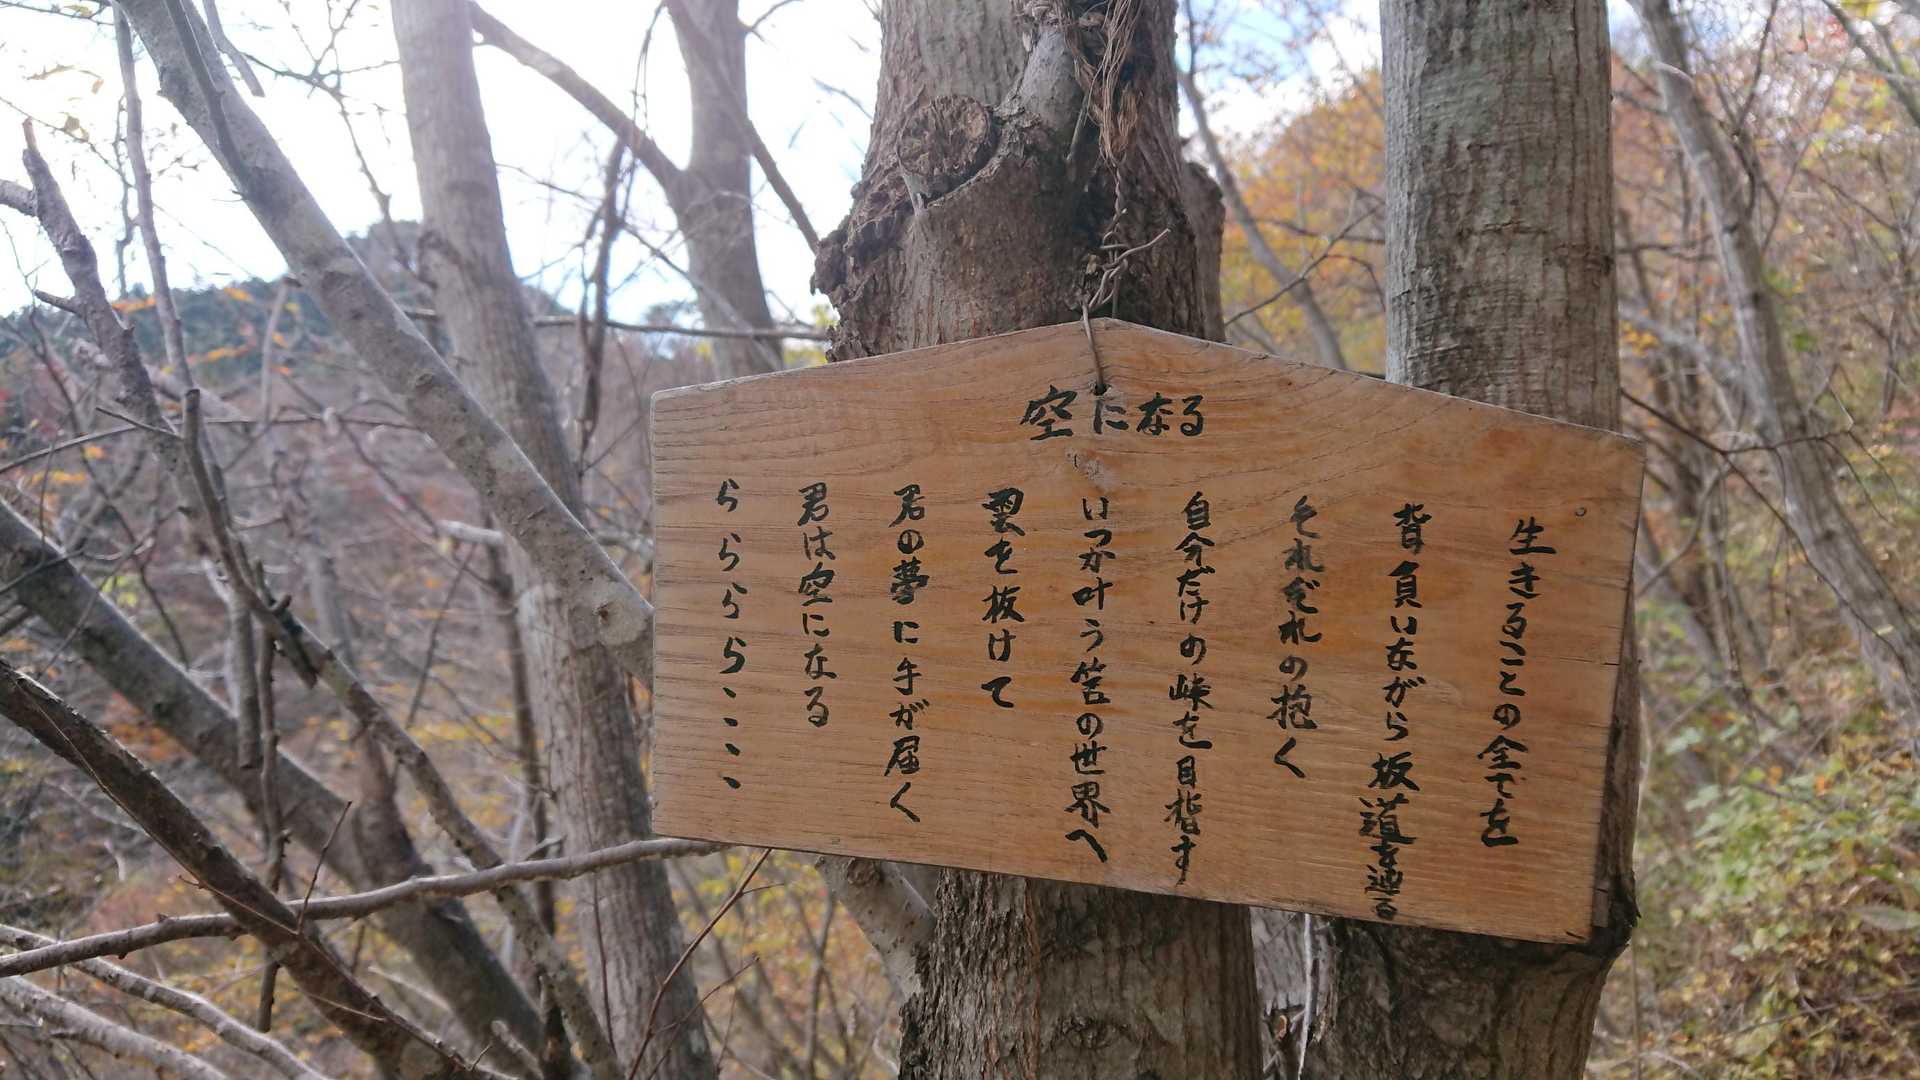 空になる
生きることの全てを
背負いながら坂道を辿る
それぞれの抱く
自分だけの峠を目指す
いつか叶う筈の世界へ
雲を抜けて
君の夢に手が届く
君は空になる
ららららら、、、、